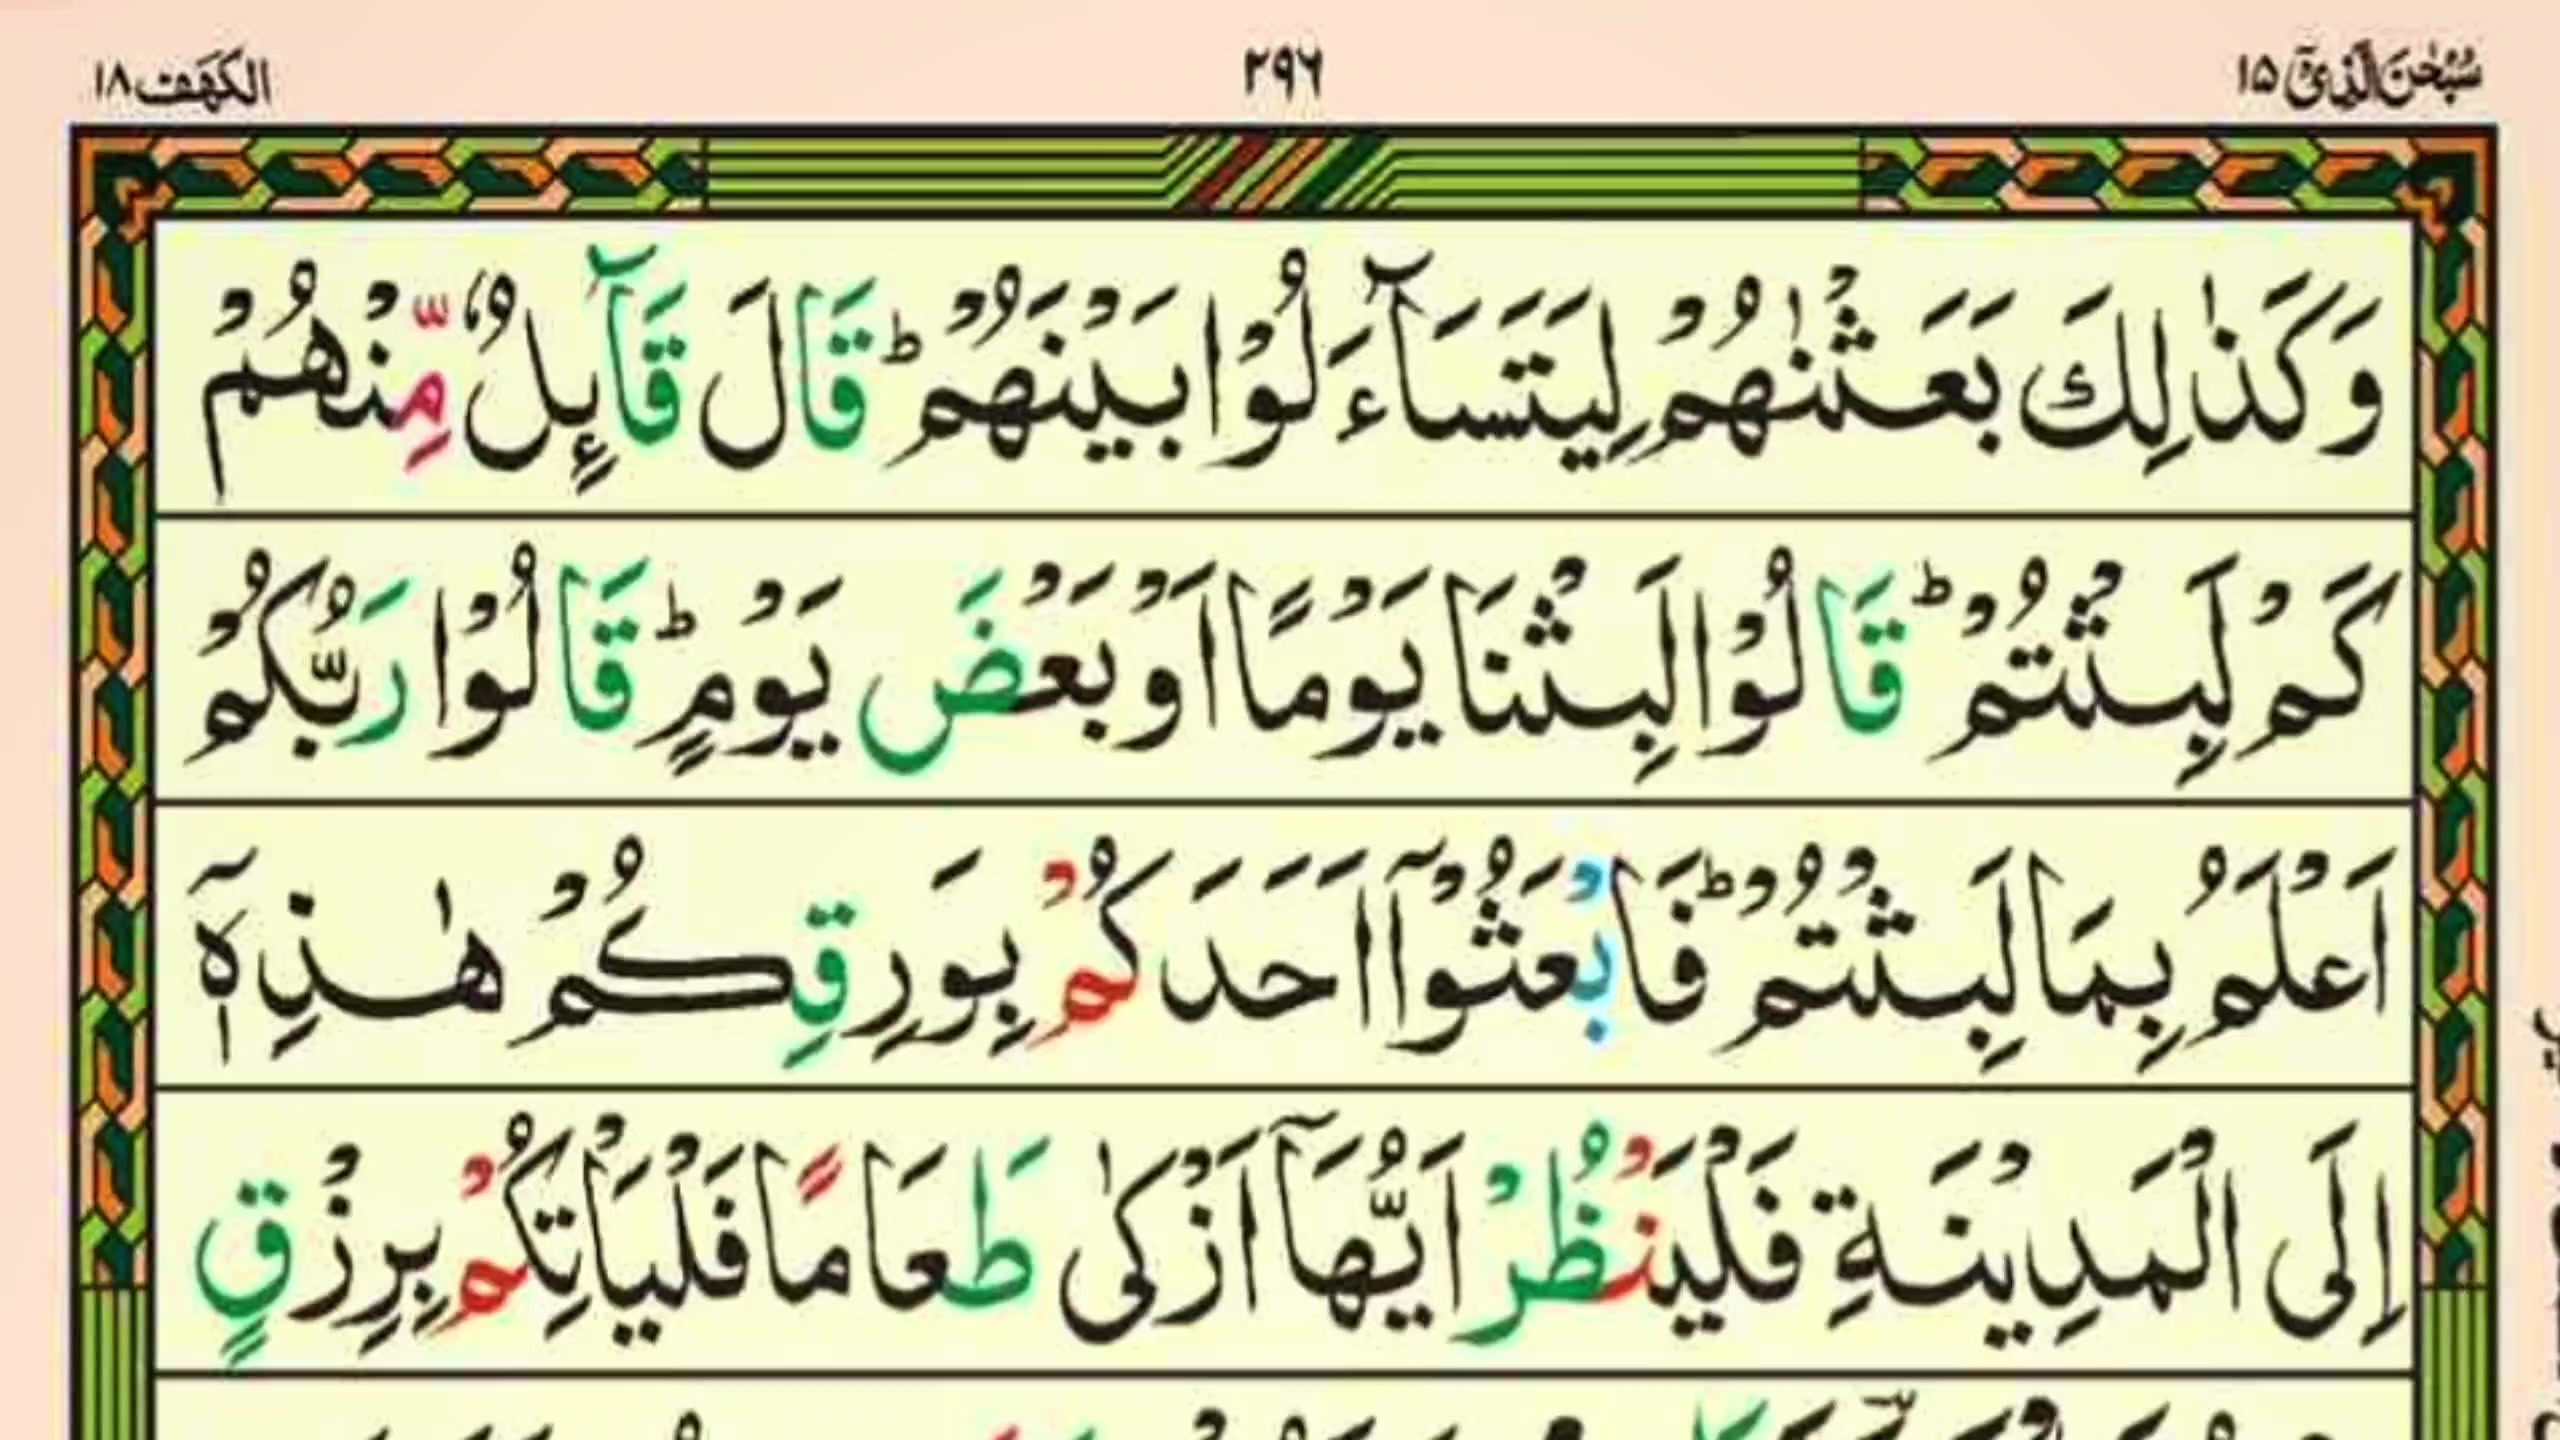 سُبْحٰنَ الَّذِیْۤ ۱۵
۲۹۶
الكَهَف ۱۸
وَكَذٰلِكَ بَعَثْنٰهُمْ لِیَتَسَآءَلُوْا بَیْنَهُمْ ؕ قَالَ قَآىِٕلٌ مِّنْهُمْ
كَمْ لَبِثْتُمْ ؕ قَالُوْا لَبِثْنَا یَوْمًا اَوْ بَعْضَ یَوْمٍ ؕ قَالُوْا رَبُّكُمْ
اَعْلَمُ بِمَا لَبِثْتُمْ ؕ فَابْعَثُوْۤا اَحَدَكُمْ بِوَرِقِكُمْ هٰذِهٖۤ
اِلَى الْمَدِیْنَةِ فَلْیَنْظُرْ اَیُّهَاۤ اَزْكٰى طَعَامًا فَلْیَاْتِكُمْ بِرِزْقٍ